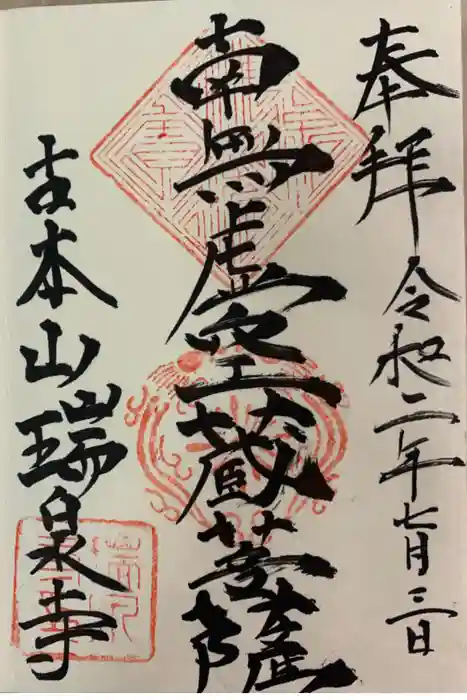 奉拝 令和二年七月三日
南無虚空蔵菩薩
本山瑞泉寺